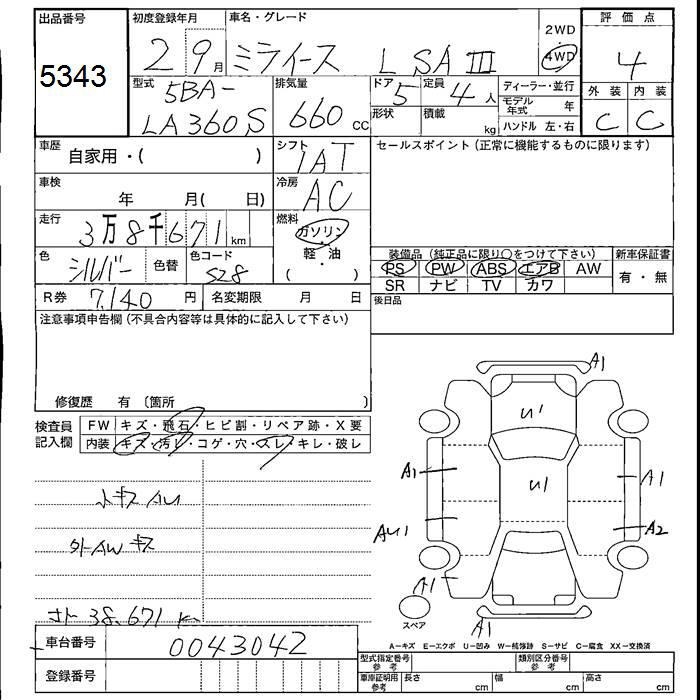 出品番号 初度登録年月 車名・グレード 2WD 評価点
5343 29月 ミライース L SAⅢ 4WD 4
型式 排気量 ドア 定員 ディーラー・並行 外装 内装
5BA- 660 CC 5 4人 モデル年式 年 C C
LA360S 形状 積載 kg ハンドル 左・右
車歴 自家用・( ) シフト セールスポイント(正常に機能するものに限ります)
IAT
車検 年 月( 日) 冷房 AC
走行 3万8千671km 燃料 ガソリン・軽・油 ( )
色 シルバー 色替 色コード S28
装備品(純正品に限り○をつけて下さい) 新車保証書
PS PW ABS エアB AW 有・無
SR ナビ TV カワ
R券 7,140円 名変期限 月 日 後日品
注意事項申告欄(不具合内容等は具体的に記入して下さい)
修復歴 有 〔箇所 )
検査員記入欄 FW キズ・飛石・ヒビ割・リペア跡・X要
内装 キズ・汚レ・コゲ・穴・スレ・キレ・破レ
A1
U1
A1 U1 A1
AU1 A2
A1
A1
スペア
38,671 K
A-キズ E-エクボ U-凹み W-補修跡 S-サビ C-腐食 XX-交換済
車台番号 0043042
型式指定番号 参考 類別区分番号 参考
登録番号 車庫証明用 参考 長さ cm 幅 cm 高さ cm